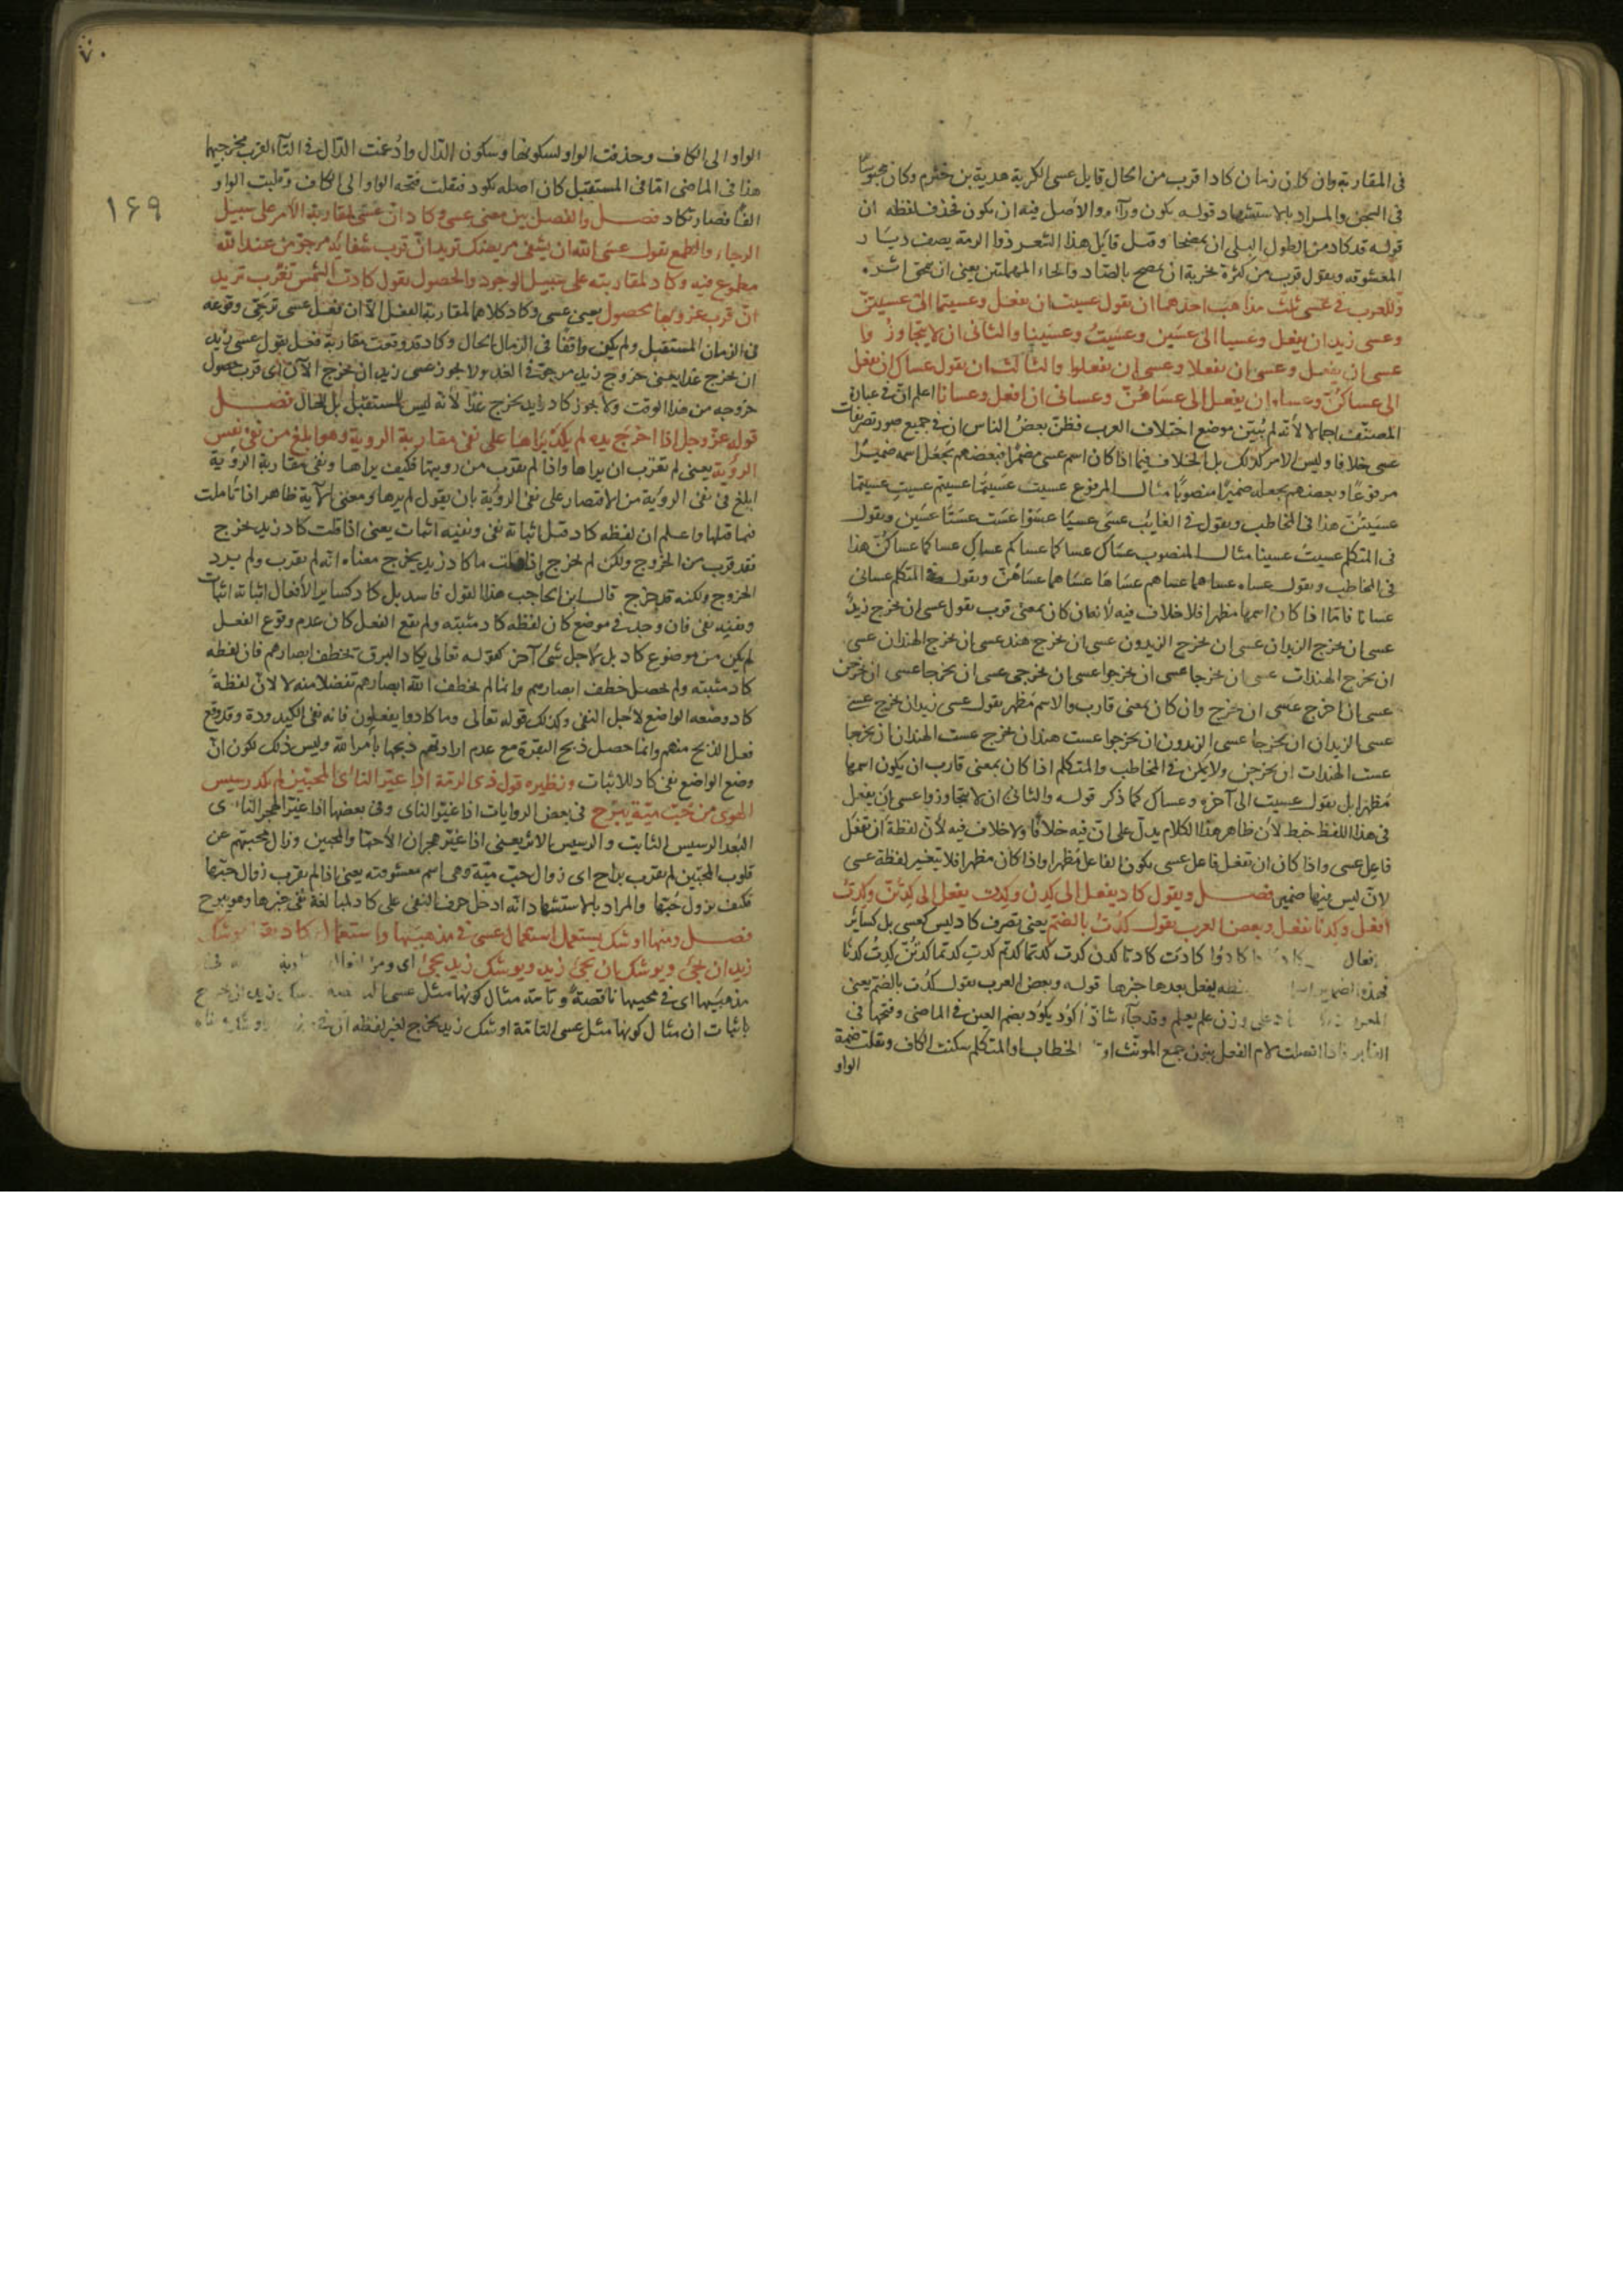 في المقاربة وان كان زمان كاد اقرب من الحال قايل عسى الكربة هدبة بن خشرم وكان محبوسًا
في السجن والمراد بالاستشهاد قوله يكون ورآءه والاصل فيه ان يكون فحذف لفظه ان
قوله قد كاد من طول البلى ان يمصحا وقيل قايل هذا الشعر ذوا الرمة يصف ديار
المعشوقه ويقول قرب من كثرة خربة ان يمصح بالصاد والحاء المهملتين يعنى ان يمحى اثره
وللعرب في عسى ثلث مذاهب احدهما ان يقول عسيت ان يفعل وعسيتما الى عسيتنّ
وعسى زيد ان يفعل وعسيا الى عسين وعسيتُ وعسينا والثانى ان لا يتجاوز وا
عسى ان يفعل وعسى ان يفعلا وعسى ان يفعلوا والثالث ان يقول عساك ان يفعل
الى عساكنّ وعساه ان يفعل الى عساهنّ وعسانى ان افعل وعسانا اعلم انّ في عبارة
المصنّف اجمالا لأنه لم يُبيّن موضع اختلاف العرب فظنّ بعضُ الناس ان في جميع صور تصريفات
عسى خلافا وليس الامر كذلك بل الخلاف فيما اذا كان اسم عسى مضمرًا فبعضهم يجعل اسمه ضميرًا
مرفوعًا وبعضهم يجعله ضميرًا منصوبًا مثال المرفوع عسيت عسيتما عسيتم عسيتِ عسيتما
عسيتنّ هذا في المخاطب ويقول في الغايب عسى عسيا عسوا عست عستا عسين ويقول
في المتكلم عسيت عسينا مثال المنصوب عساك عساكما عساكم عساكِ عساكما عساكنّ هذا
في المخاطب ويقول عساه عساهما عساهم عساها عساهما عساهنّ ويقول في المتكلم عسانى
عسانا فامّا اذا كان اسمها مظهرا فلا خلاف فيه لأنها ان كان بمعنى قرب يقول عسى ان يخرج زيدٌ
عسى ان يخرج الزيدان عسى ان يخرج الزيدون عسى ان يخرج هند عسى ان يخرج الهندان عسى
ان يخرج الهندات عسى ان يخرجا عسى ان يخرجوا عسى ان يخرجى عسى ان يخرجا عسى ان يخرجن
عسى ان اخرج عسى ان نخرج وان كان بمعنى قارب والاسم مظهر يقول عسى زيد ان يخرج عسى
عسى الزيدان ان يخرجا عسى الزيدون ان يخرجوا عست هند ان تخرج عست الهندان ان يخرجا
عست الهندات ان يخرجن ولا يمكن في المخاطب والمتكلم اذا كان بمعنى قارب ان يكون اسمها
مظهرا بل يقول عسيت الى آخره وعساك كما ذكر قوله والثانى ان لا يتجاوز وا عسى ان يفعل
في هذا اللفظ خبط لأن ظاهر هذا الكلام يدلّ على انّ فيه خلافًا ولا خلاف فيه لأنّ لفظة ان تفعل
فاعل عسى واذا كان ان تفعل فاعل عسى يكون الفاعل مُظهرا واذا كان مظهرا فلا يتغير لفظة عسى
لانّ ليس فيها ضمير فصل ويقول كاد يفعل الى كدن وكدت يفعل الى كدتنّ وكدتُ
افعل وكدنا نفعل وبعض العرب يقول كُدت بالضم يعنى تصرف كاد ليس كعسى بل كسائر
كادوا كادت كادتا كدن كدت كدتما كدتم كدتِ كدتما كدتنّ كدتُ كدنا
يفعل بعدها خبرها قوله وبعض العرب يقول كُدت بالضم يعنى
على وزن علم يعلم وقد جآء شاذّا كَوُد يكوُد بضم العين في الماضى وفتحها في
الغابر فاذا اتصلت لام الفعل بنون جمع المونث او الخطاب او المتكلم سكنت الكاف ونقلت ضمة
الواو
٧٠
١٦٩
الواو الى الكاف وحذفت الواو لسكونها وسكون الدال وادُغمت الدال في التآء لقرب مخرجيها
هذا في الماضى امّا في المستقبل كان اصله يكود فنقلت فتحة الواو الى الكاف وقلبت الواو
الفًا فصار تكاد فصل والفصل بين معنى عسى وكاد انّ عسى لمقاربة الأمر على سبيل
الرجاء والطمع يقول عسى الله ان يشفى مريضك تريد انّ قرب شفائه مرجو من عند الله
مطموع فيه وكاد لمقاربته على سبيل الوجود والحصول يقول كادت الشمس تغرب تريد
انّ قرب غروبها حصول يعنى عسى وكاد كلاهما لمقاربة الفعل الا ان تفعل عسى ترجّى وقوعه
في الزمان المستقبل ولم يكن واقفا في الزمان الحال وكاد قد وقعت مقاربة فعل يقول عسى زيد
ان يخرج غدا يعنى خروج زيد مرجو في الغد ولا يجوز عسى زيد ان يخرج الآن اى قرب حصول
خروجه من هذا الوقت ولا يجوز كاد زيد يخرج غدًا لأنه ليس للمستقبل بل للحال فصل
قوله عزّ وجل اذا اخرج يده لم يكد يراها على نفى مقاربة الروية وهو ابلغ من نفى نفس
الرؤية يعنى لم تقرب ان يراها واذا لم يقرب من رويتها فكيف يراها ونفى مقاربة الرؤية
ابلغ في نفى الرؤية من الاقتصار على نفى الرؤية بان يقول لم يرها ومعنى الآية ظاهر اذا تأملت
فيما قبلها واعلم ان لفظه كاد قيل اثباته نفى ونفيه اثبات يعنى اذا قلت كاد زيد يخرج
فقد قرب من الخروج ولكن لم يخرج اذا قلت ما كاد زيد يخرج معناه انه لم يقرب ولم يرد
الخروج ولكنه قد خرج قال ابن الحاجب هذا القول فاسد بل كاد كساير الأفعال اثباته اثبات
ونفيه نفى فان وجد في موضع كان لفظه كاد مثبته ولم يقع الفعل كان عدم وقوع الفعل
لم يكن من موضوع كاد بل لأجل شىء آخر كقوله تعالى يكاد البرق يخطف ابصارهم فان لفظه
كاد مثبته ولم يحصل خطف ابصارهم وانما لم يخطف الله ابصارهم تفضلا منه لا لأنّ لفظة
كاد وضعه الواضع لأجل النفى وكذلك قوله تعالى وما كادوا يفعلون فانه نفى الكيدودة وقد وقع
فعل الذبح منهم وانما حصل ذبح البقرة مع عدم ارادتهم ذبحها بأمر الله وليس ذلك لكون انّ
وضع الواضع نفى كاد للاثبات ونظيره قول ذى الرمة اذا غيّر النأى المحبّين لم يكد رسيس
الهوى من حُبّ ميّة يبرح في بعض الروايات اذا غيّر الناى وفى بعضها اذا غيّر الهجر الناى
البُعد الرسيس الثابت والرسيس الاثر يعنى اذا غيّر هجران الأحبّا والمحبين وزال محبتهم عن
قلوب المحبّين لم يقرب براح اى زوال حبّ ميّة وهى اسم معشوقته يعنى اذا لم يقرب زوال حبّها
فكيف يزول حُبّها والمراد بالاستشهاد انه ادخل حرف النفى على كاد لمبالغة نفى خبرها وهو يبرح
فصل ومنها اوشك يستعمل استعمال عسى في مذهبيها واستعمال كاد يقول يوشك
زيد ان يجىء ويوشك ان يجىء زيد ويوشك زيد يجىء اى ومن افعال
مذهبيها اى في مجيها ناقصة وتامّة مثال كونها مثل عسى
باثبات ان مثال كونها مثل عسى التامّة اوشك زيد يخرج لغير لفظه ان